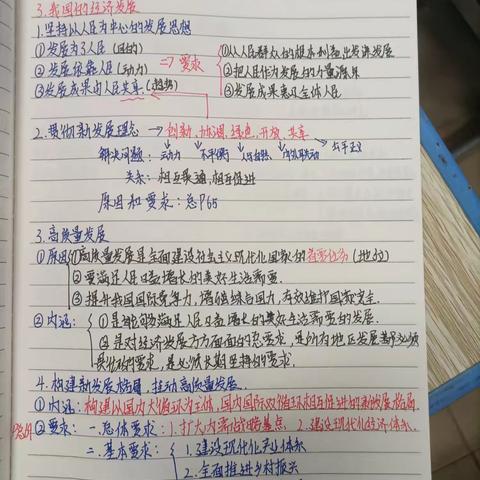 3. 我国的经济发展
1. 坚持以人民为中心的发展思想
① 发展为了人民 (目的)
② 发展依靠人民 (动力) ⇒ 要求
③ 发展成果由人民共享 (趋势)
① 从人民群众的根本利益出发谋发展
② 把人民作为发展的力量源泉
③ 发展成果惠及全体人民
2. 贯彻新发展理念 → 创新、协调、绿色、开放、共享
解决问题: 动力 不平衡 人与自然 内外联动 公平正义
关系: 相互贯通,相互促进
原因和要求: 总P65
3. 高质量发展
① 原因 ① 高质量发展是全面建设社会主义现代化国家的首要任务 (地位)
② 要满足人民日益增长的美好生活需要.
③ 提升我国国际竞争力, 增强综合国力, 有效维护国家安全.
② 内涵: ① 是能够满足人民日益增长的美好生活需要的发展.
② 是对经济发展方方面面的总要求, 是所有地区发展都必须
贯彻的要求, 是必须长期坚持的要求.
4. 构建新发展格局, 推动高质量发展.
① 内涵: 构建以国内大循环为主体, 国内国际双循环相互促进的新发展格局
② 要求: 一. 总体要求: 1. 扩大内需战略基点 2. 建设现代化经济体系.
二. 基本要求: 1. 建设现代化产业体系
2. 全面推进乡村振兴